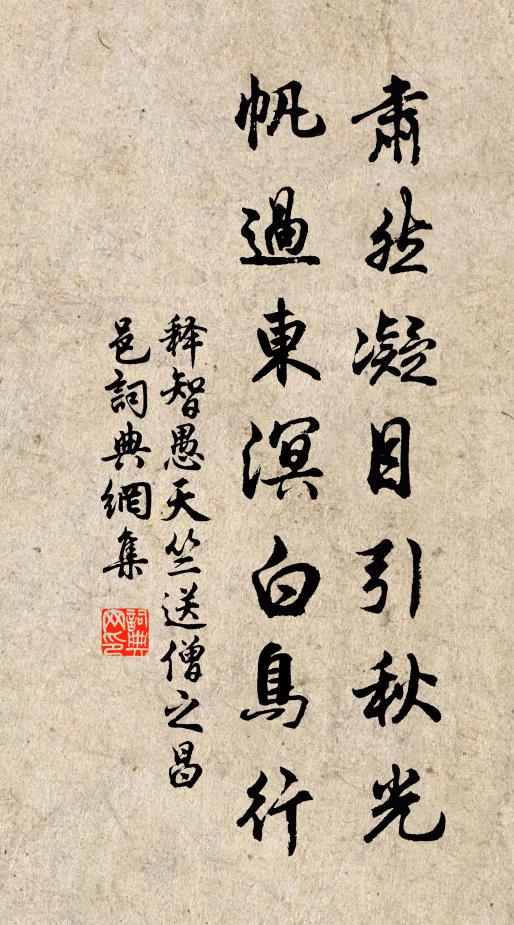 肅然凝目引秋光
帆過東溟白鳥行
释智愚天竺送僧之昌
邑詞典網集
詞典網印